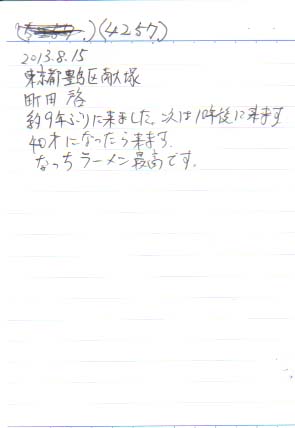 (4257)
2013.8.15
東京都豊島区南大塚
町田 啓
約9年ぶりに来ました。次は10年後に来ます
40才になったら来ます。
なっちラーメン最高です。